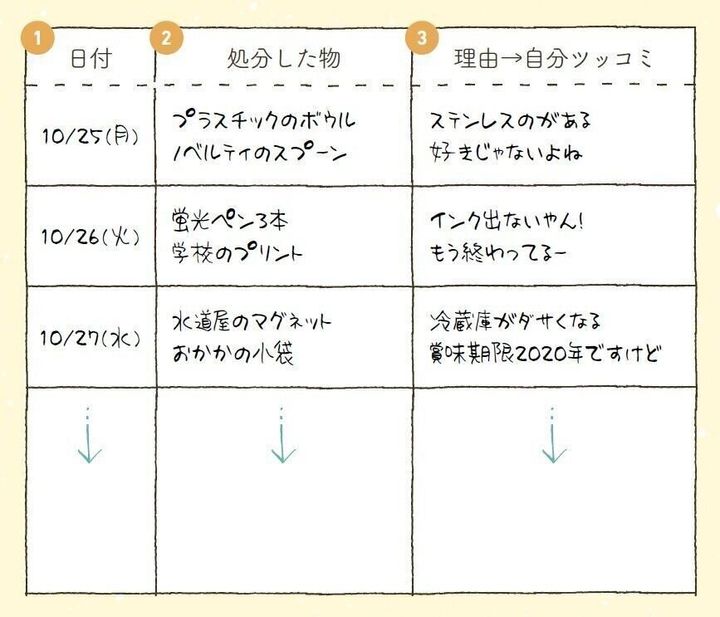 1 日付 2 処分した物 3 理由→自分ツッコミ
10/25(月)
プラスチックのボウル
ノベルティのスプーン
ステンレスのがある
好きじゃないよね
10/26(火)
蛍光ペン3本
学校のプリント
インク出ないやん!
もう終わってるー
10/27(水)
水道屋のマグネット
おかかの小袋
冷蔵庫がダサくなる
賞味期限2020年ですけど